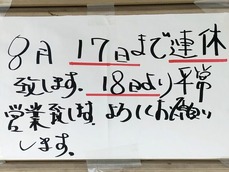 8月17日まで連休
致します。18日より平常
営業致します。よろしくお願い
します。